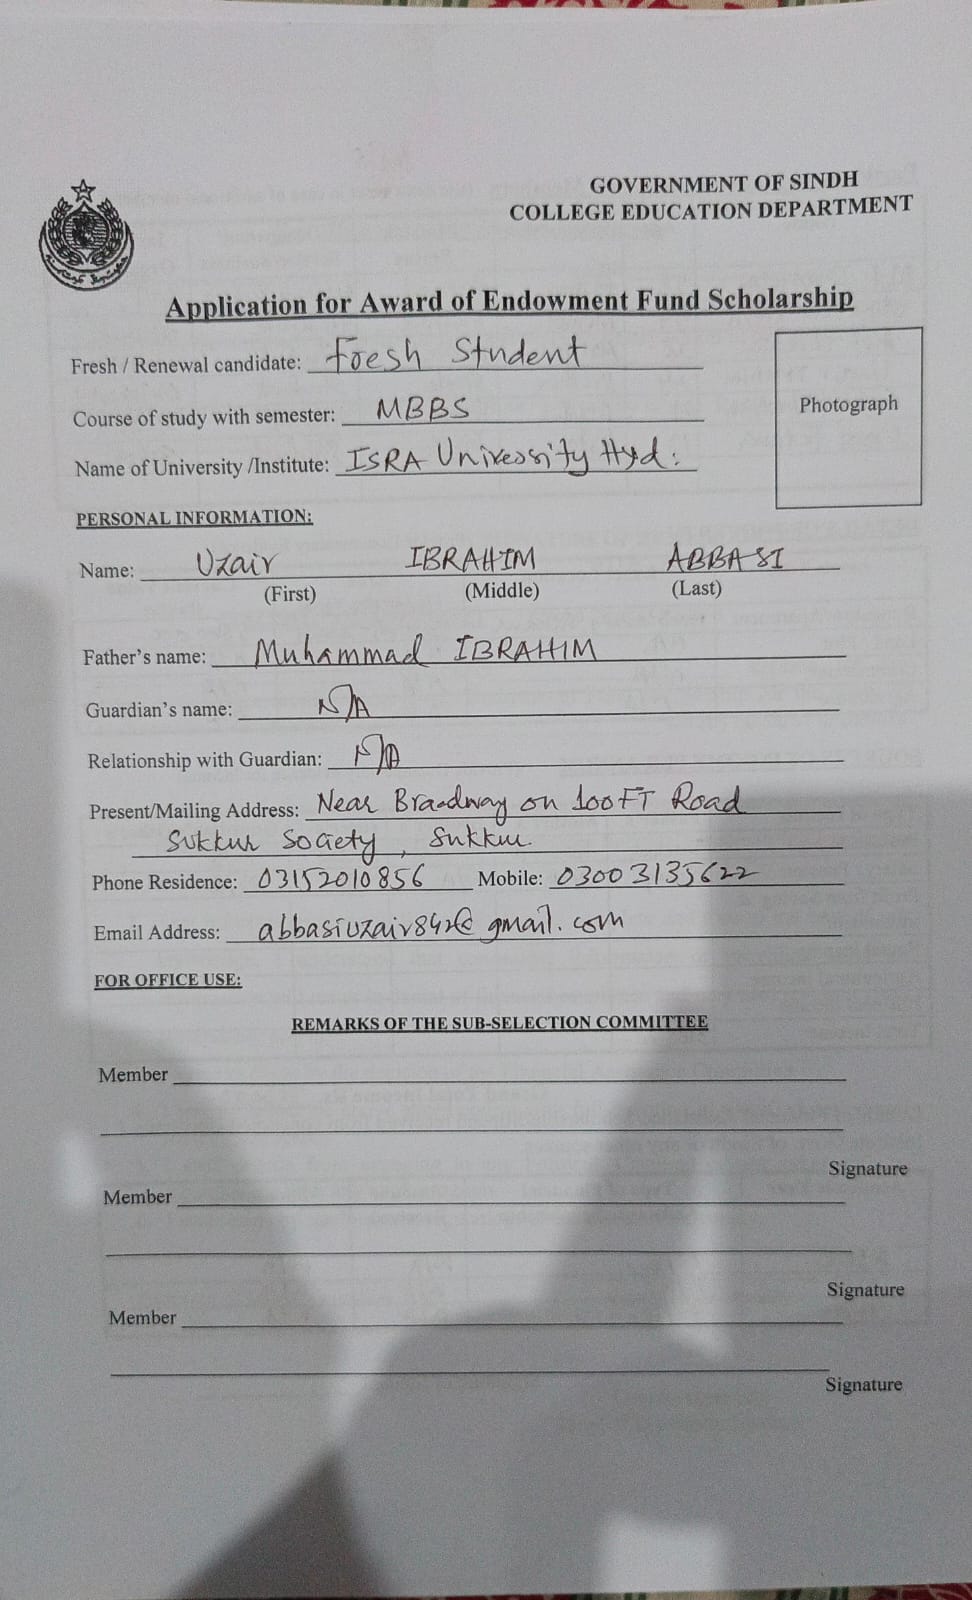 GOVERNMENT OF SINDH
COLLEGE EDUCATION DEPARTMENT
Application for Award of Endowment Fund Scholarship
Fresh / Renewal candidate: Fresh Student
Photograph
Course of study with semester: MBBS
Name of University /Institute: ISRA University Hyd:
PERSONAL INFORMATION:
Name: Uzair IBRAHIM ABBASI
(First) (Middle) (Last)
Father's name: Muhammad IBRAHIM
Guardian's name: N/A
Relationship with Guardian: N/A
Present/Mailing Address: Near Broadway on 100FT Road
Sukkur Society, Sukkur
Phone Residence: 03152010856 Mobile: 03003135622
Email Address: abbasiuzair842@gmail.com
FOR OFFICE USE:
REMARKS OF THE SUB-SELECTION COMMITTEE
Member
Signature
Member
Signature
Member
Signature